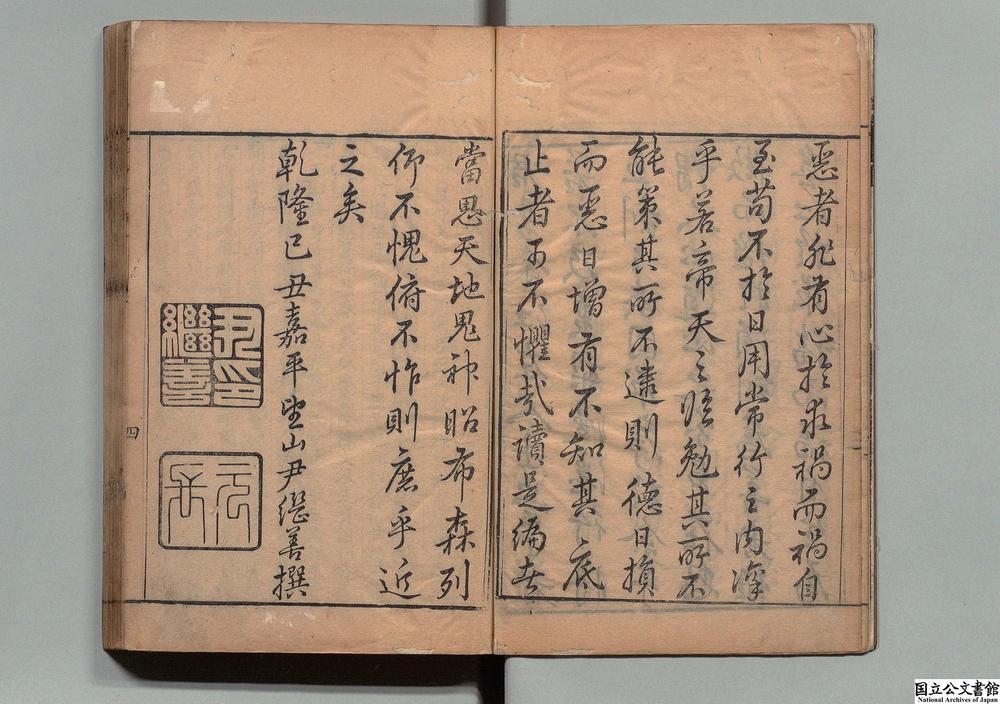 惡者非有心於求禍而禍自
至苟不於日用常行之内凜
乎若帝天之臨勉其所不
能策其所不逮則德日損
而惡日增有不知其底
止者可不懼哉讀是編者
當思天地鬼神昭布森列
仰不愧俯不怍則庶乎近
之矣
乾隆己丑嘉平望山尹繼善撰
尹繼善印
元長
四
国立公文書館
National Archives of Japan